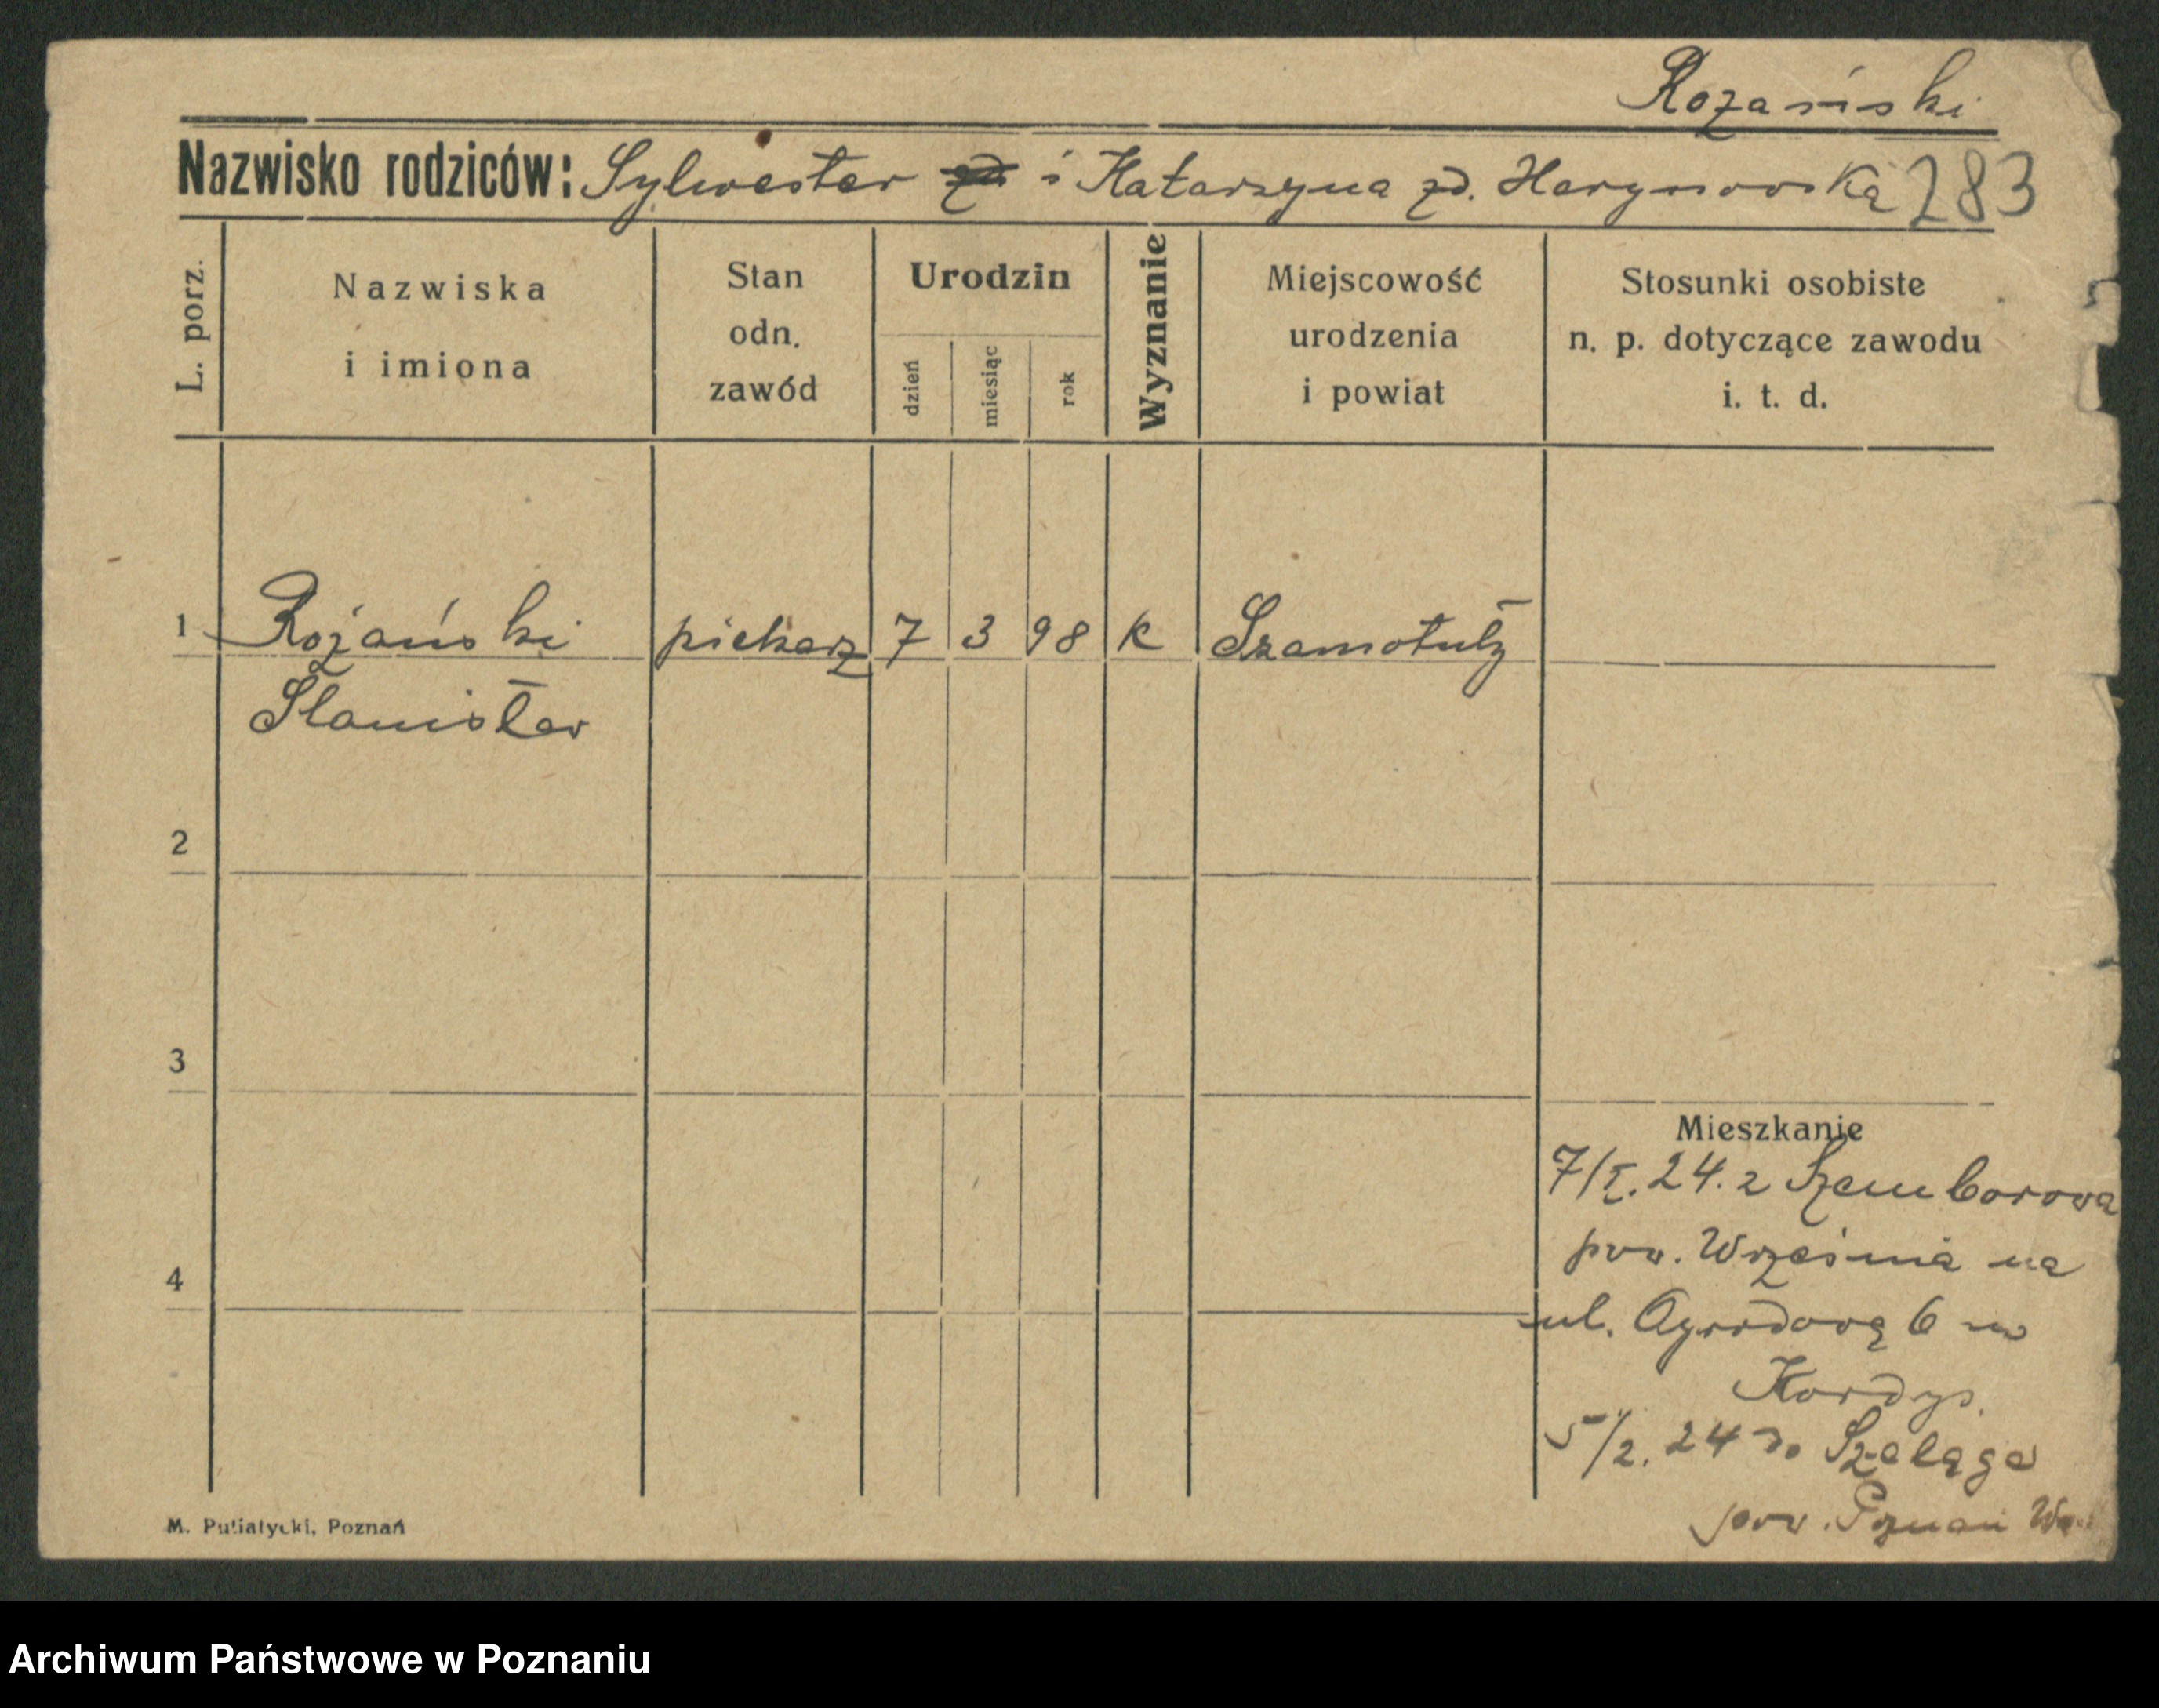 Rozański
Nazwisko rodziców: Sylwester i Katarzyna zd. 283
L. porz.
Nazwiska
i imiona
Stan
odn.
zawód
Urodzin
dzień
miesiąc
rok
Wyznanie
Miejscowość
urodzenia
i powiat
Stosunki osobiste
n. p. dotyczące zawodu
i. t. d.
1 Rożański piekarz 7 3 98 K Szamotuły
Stanisław
2
3
Mieszkanie
7/I. 24. z Szemborowa
pow. Września na
4
ul. Ogrodową 6 w
Kordys.
5/2. 24 do Szeląga
pow. Poznań
M. Putiatycki, Poznań
Archiwum Państwowe w Poznaniu